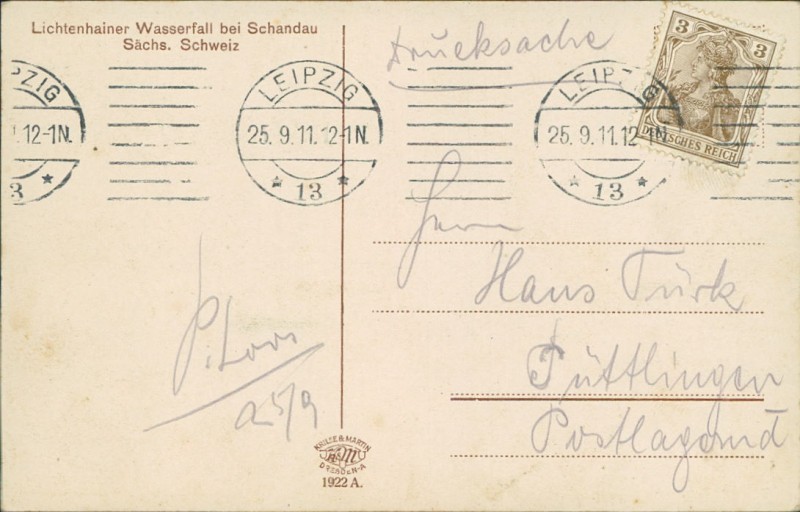 Lichtenhainer Wasserfall bei Schandau
Sächs. Schweiz
Drucksache
3 3
DEUTSCHES REICH
ZIG
12-1N.
3 *
LEIPZIG
25. 9. 11. 12-1N.
* 13 *
LEIPZIG
25. 9. 11. 12-N
* 13 *
Herrn
Hans Türk
Püttlingen
Postlagernd
P. Loos
25/9
KRILLE & MARTIN
K&M
DRESDEN-A
1922 A.